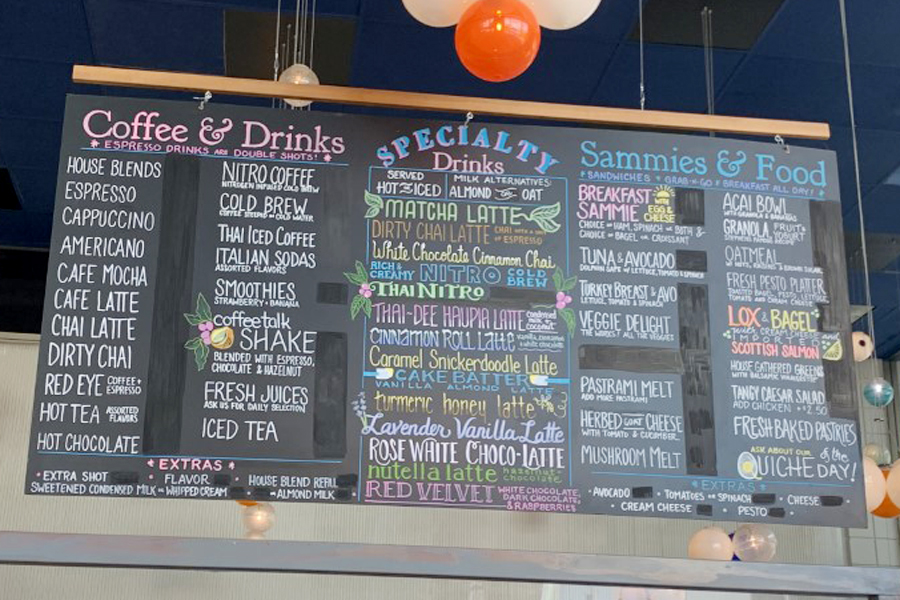 Coffee & Drinks
* ESPRESSO DRINKS ARE DOUBLE SHOTS! *
HOUSE BLENDS
ESPRESSO
CAPPUCCINO
AMERICANO
CAFE MOCHA
CAFE LATTE
CHAI LATTE
DIRTY CHAI
RED EYE COFFEE + ESPRESSO
HOT TEA ASSORTED FLAVORS
HOT CHOCOLATE
NITRO COFFEE
NITROGEN INFUSED COLD BREW
COLD BREW
COFFEE STEEPED IN COLD WATER
THAI ICED COFFEE
ITALIAN SODAS
ASSORTED FLAVORS
SMOOTHIES
STRAWBERRY • BANANA
coffee talk
SHAKE
BLENDED WITH ESPRESSO,
CHOCOLATE & HAZELNUT
FRESH JUICES
ASK US FOR DAILY SELECTION
ICED TEA
* EXTRAS *
• EXTRA SHOT • FLAVOR • HOUSE BLEND REFILL
SWEETENED CONDENSED MILK • WHIPPED CREAM • ALMOND MILK
SPECIALTY
Drinks
SERVED
HOT OR ICED
MILK ALTERNATIVES:
ALMOND OR OAT
MATCHA LATTE
DIRTY CHAI LATTE CHAI WITH A SHOT OF ESPRESSO
White Chocolate Cinnamon Chai
RICH & CREAMY NITRO COLD BREW
THAI NITRO
THAI-DEE HAUPIA LATTE condensed milk & coconut
CINNAMON ROLL Latte vanilla, cinnamon & white chocolate
Caramel Snickerdoodle Latte
CAKE BATTER
VANILLA ALMOND LATTE
turmeric honey latte
Lavender Vanilla Latte
ROSE WHITE CHOCO-LATTE
nutella latte hazelnut + chocolate
RED VELVET WHITE CHOCOLATE, DARK CHOCOLATE, & RASPBERRIES
Sammies & Food
* SANDWICHES • GRAB & GO • BREAKFAST ALL DAY! *
BREAKFAST
SAMMIE WITH EGG & CHEESE
CHOICE OF HAM, SPINACH OR BOTH &
CHOICE OF BAGEL OR CROISSANT
TUNA & AVOCADO
TURKEY BREAST & AVO
LETTUCE, TOMATO & SPINACH
VEGGIE DELIGHT
THE WORKS! ALL THE VEGGIES
PASTRAMI MELT
ADD MORE PASTRAMI
HERBED GOAT CHEESE
WITH TOMATO & CUCUMBER
MUSHROOM MELT
AÇAI BOWL
WITH GRANOLA & BANANAS
GRANOLA, FRUIT + YOGURT
OATMEAL
FRESH PESTO PLATTER
TOASTED BAGEL, PESTO
TOMATO AND CREAM CHEESE
LOX & BAGEL
with CREAM CHEESE
IMPORTED
SCOTTISH SALMON
HOUSE GATHERED GREENS
WITH BALSAMIC VINAIGRETTE
TANGY CAESAR SALAD
ADD CHICKEN +2.50
FRESH BAKED PASTRIES
ASK ABOUT OUR
QUICHE of the DAY!
* EXTRAS *
• AVOCADO • TOMATOES • SPINACH • CHEESE
• CREAM CHEESE • PESTO